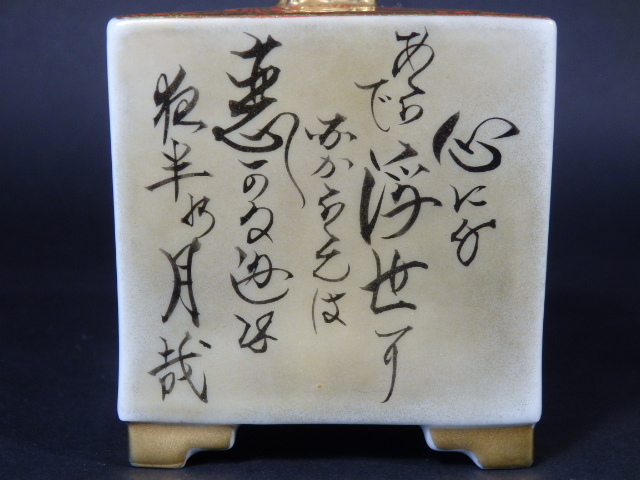 心にも
あらで浮世に
なからへは
恋しかるへき
夜半の月哉